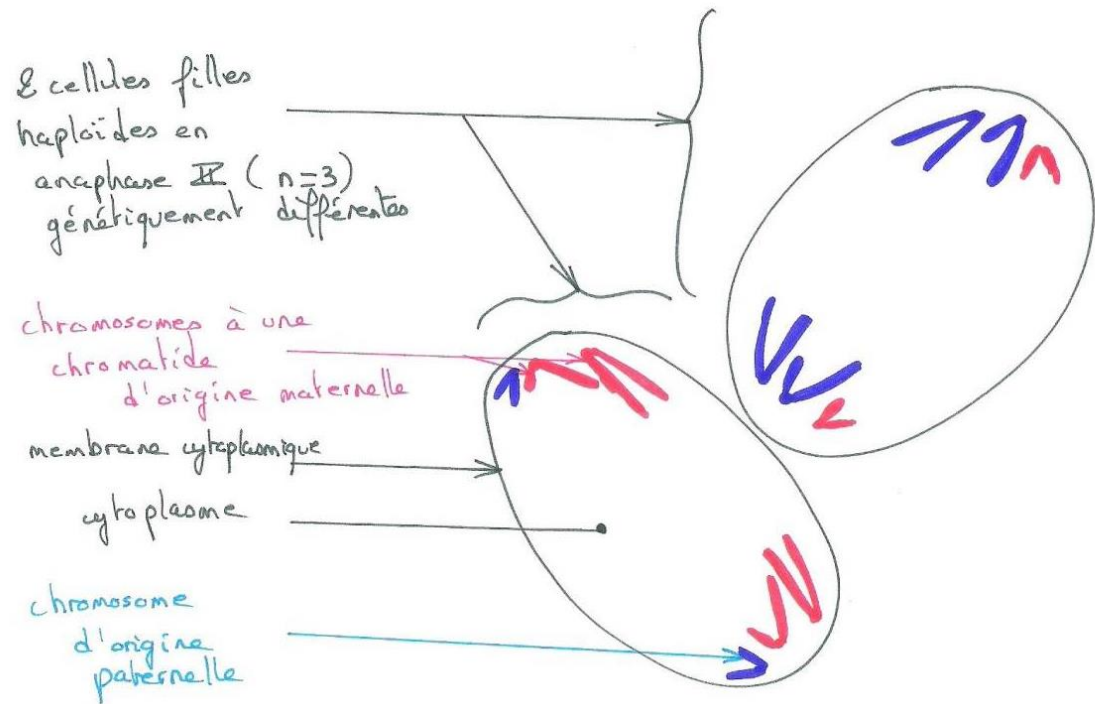 2 cellules filles
haploïdes en
anaphase II (n=3)
génétiquement différentes
chromosomes à une
chromatide
d'origine maternelle
membrane cytoplasmique
cytoplasme
chromosome
d'origine
paternelle